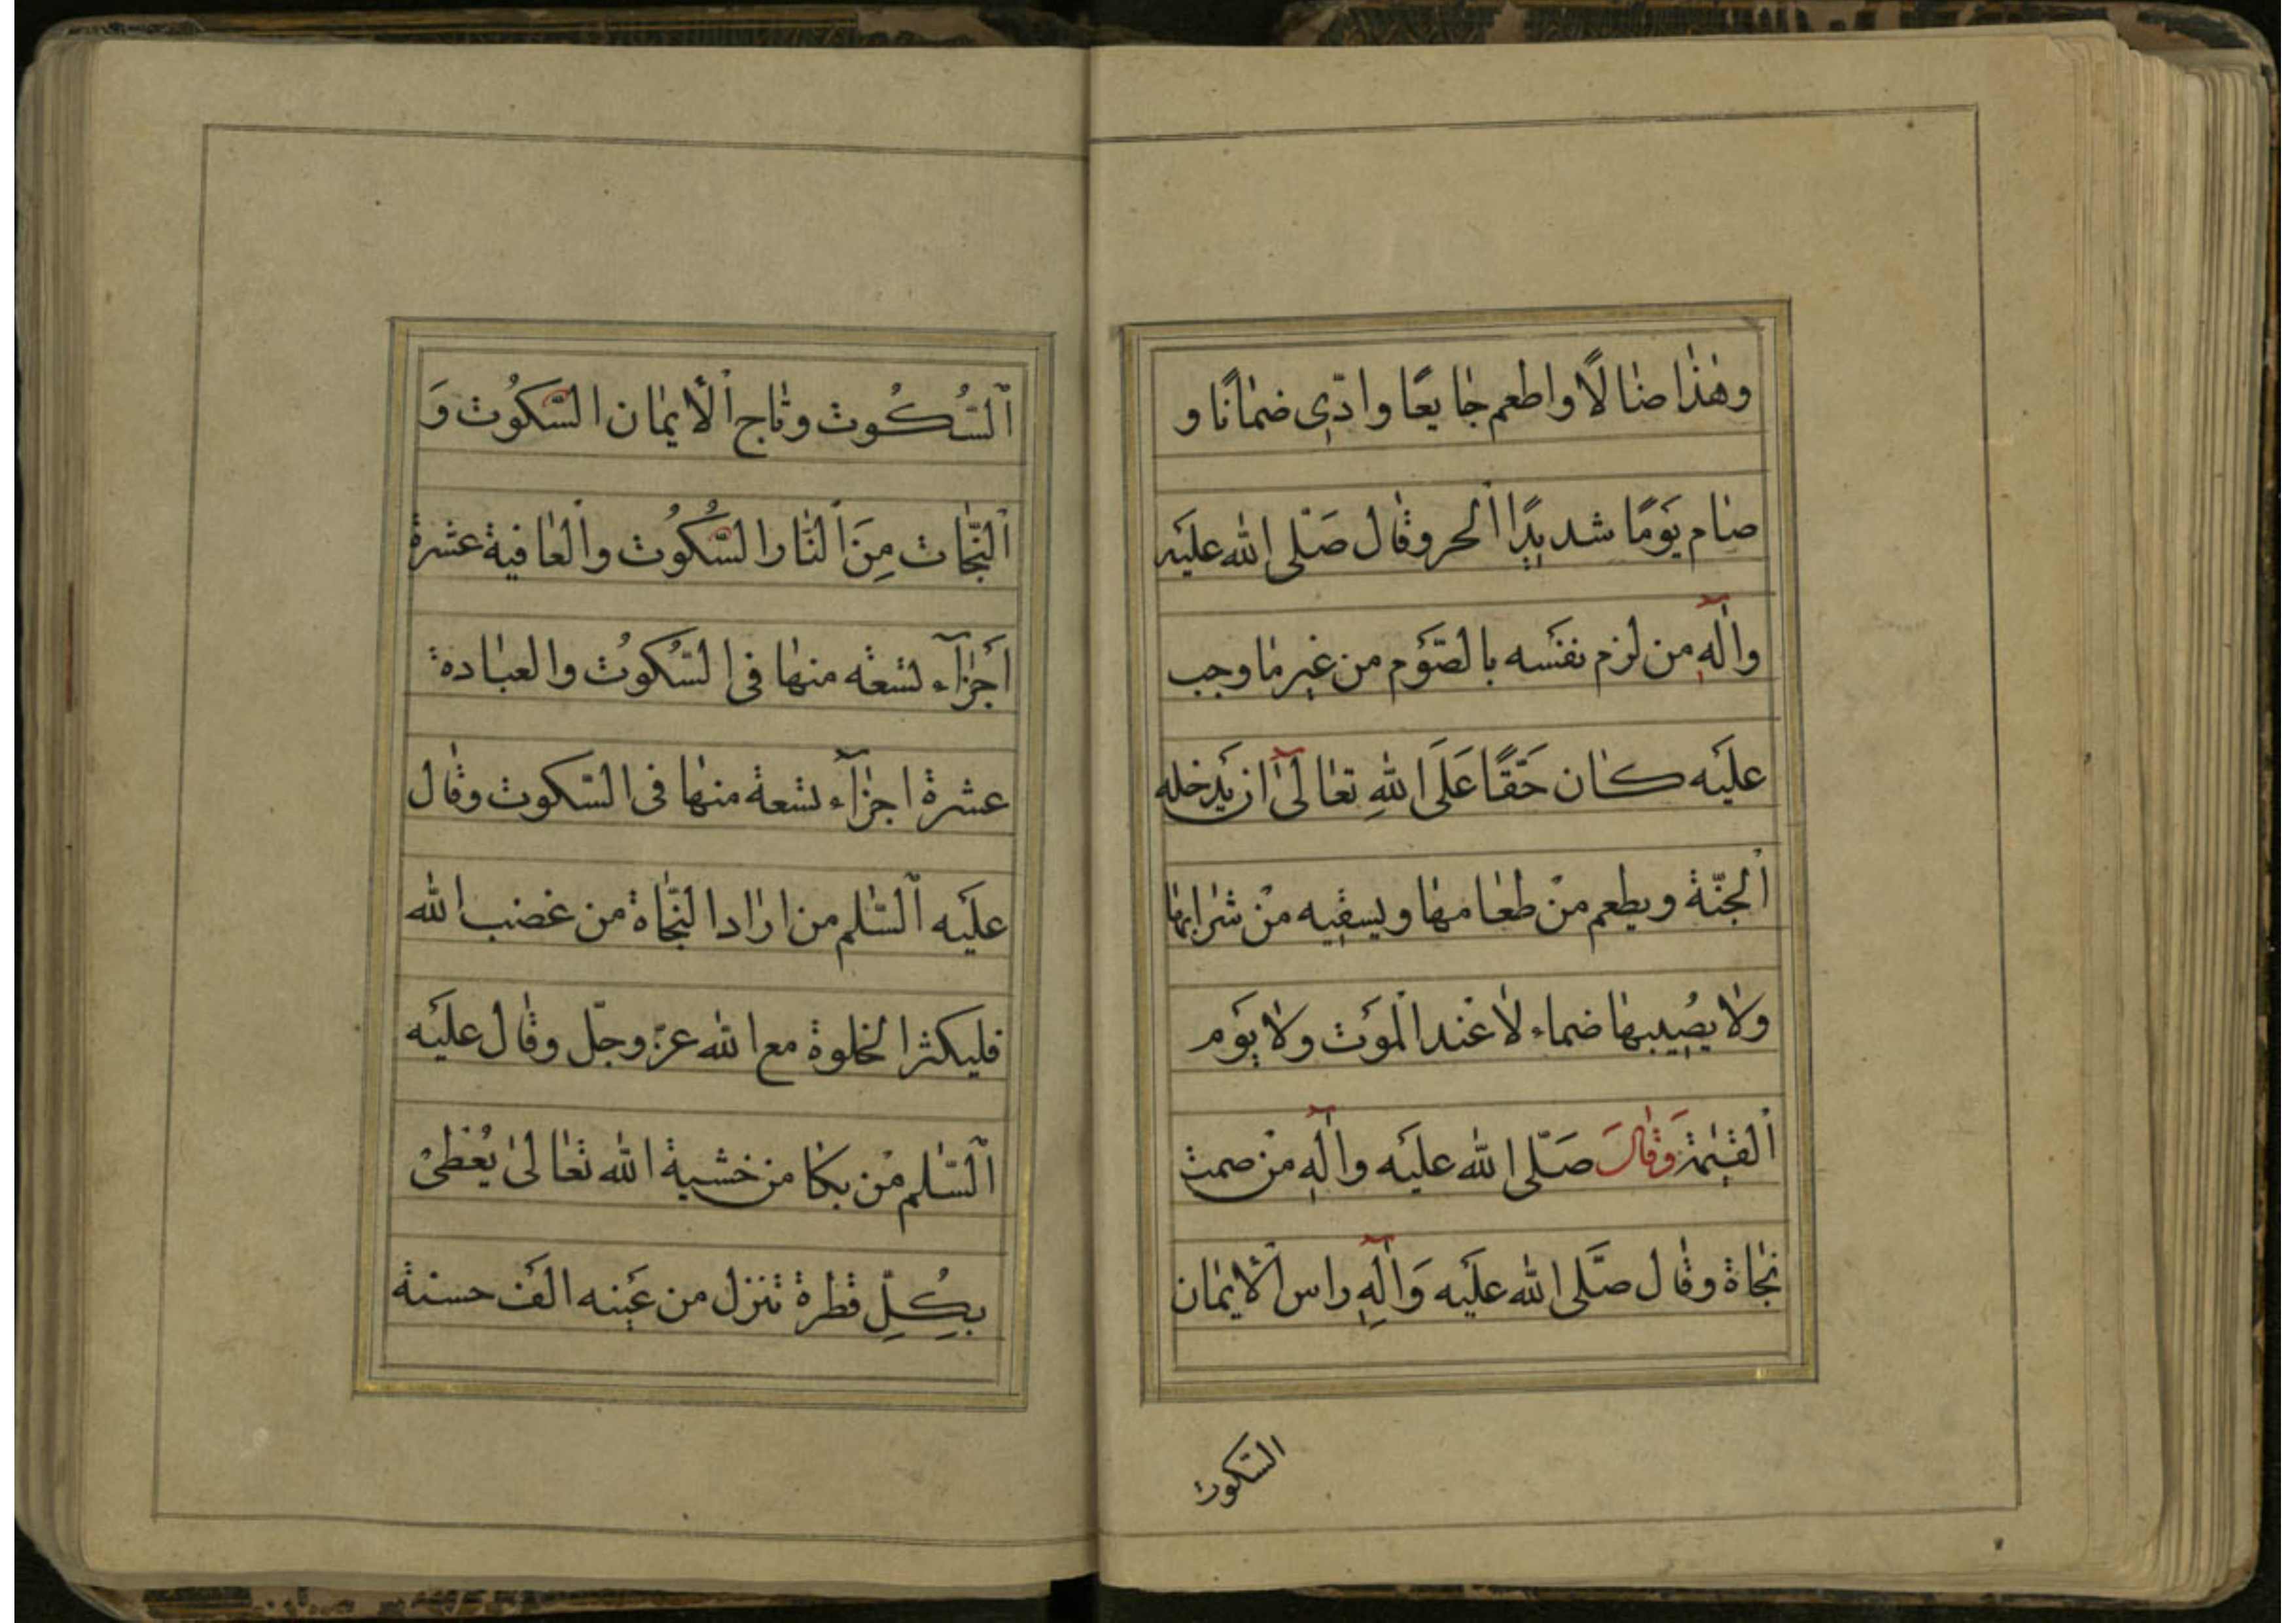 وهٰذٰا ضٰالًا واطعم جٰايعًا وادّىٰ ضمٰانًا و
صٰام يَومًا شديدًا الْحر وقٰال صَلّى الله عليَه
واٰلهِ من لزم نفسَه بالصّوَم من غير مٰا وجب
عليَه كٰان حَقًّا عَلَى اللهِ تعٰالىٰٓ ان يَدخله
الْجنّة ويطعم منْ طعٰامهٰا ويسقيه منْ شرٰابهٰا
ولٰا يصُيبهٰا ضماء لٰا عنْد الْموَت ولٰا يوَم
الْقيٰمة وَقٰالَ صَلّى الله عليَه واٰلهِ منْ صمت
نجٰاة وقٰال صَلّى الله عليَه وَاٰلِهِ راس الْايمٰان
السُّكُوت وتٰاج الْأيمٰان السّكُوت وَ
النّجٰات مِنَ النّٰار السُّكُوُت والْعٰافية عشرة
اَجزٰآء تسَعة منهٰا فى السّكُوُت والعبٰادة
عشرة اجزٰآء تسعة منهٰا فى السّكوت وقٰال
عليَه السّٰلم من ارٰاد النّجٰاة من غضب الله
فليكثر الخلوة مع الله عزّ وجلّ وقٰال عليَه
السّٰلم منْ بكٰا من خشية الله تعٰالىٰ يُعْطىٰ
بِكُلِّ قطرة تنزل من عيَنه الَف حسنة
السّكوت